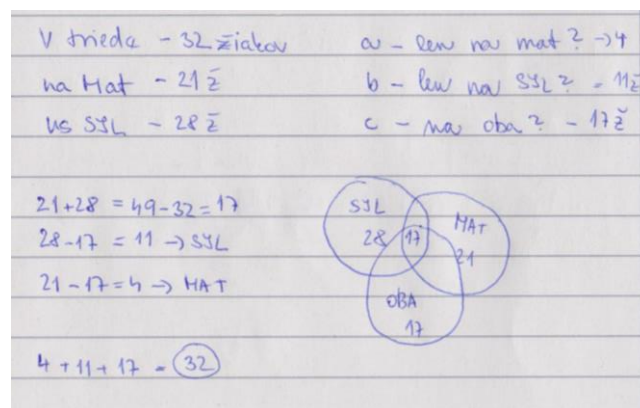 V triede - 32 žiakov
na Mat - 21 ž
na SJL - 28 ž
a - len na mat? → 4
b - len na SJL? - 11 ž
c - na oba? - 17 ž
21 + 28 = 49 - 32 = 17
28 - 17 = 11 → SJL
21 - 17 = 4 → MAT
4 + 11 + 17 = 32
SJL
28
17
MAT
21
OBA
17